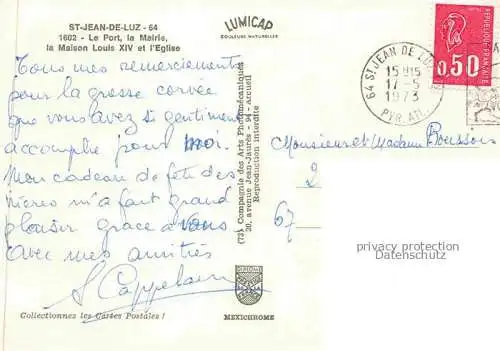 ST-JEAN-DE-LUZ - 64
1602 - Le Port, la Mairie,
la Maison Louis XIV et l'Eglise
LUMICAP
COULEURS NATURELLES
Tous mes remerciements
pour la grosse corvée
que vous avez si gentiment
accomplie pour moi.
Mon cadeau de fête des
mères m'a fait grand
plaisir grace a vous
Avec mes amitiés
Collectionnez les Cartes Postales !
(73) Compagnie des Arts Photomécaniques
20, avenue Jean-Jaurès - 94 - Arcueil
Reproduction interdite
MEXICHROME
64 ST JEAN DE LUZ
15H15
17-5
1973
PYR. ATL.
REPUBLIQUE FRANCAISE
0,50
Monsieur et Madame
2
67
privacy protection
Datenschutz